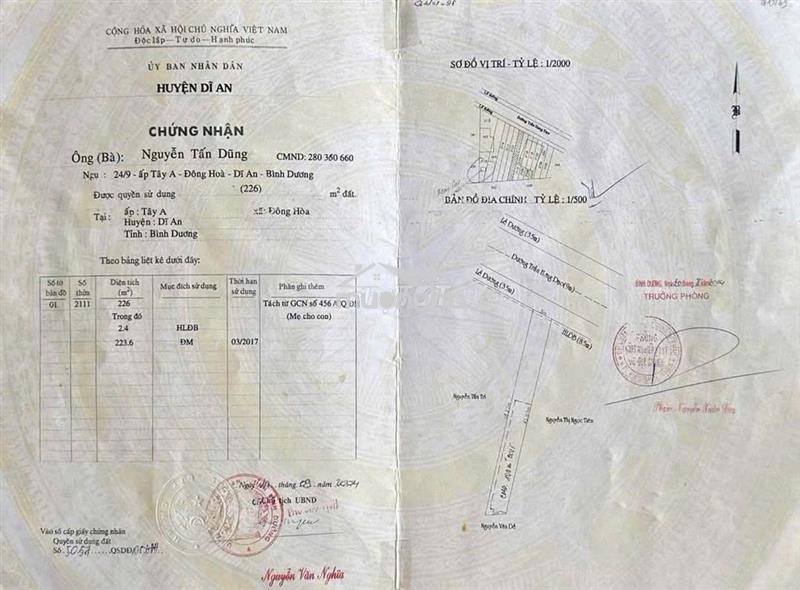 CỘNG HÒA XÃ HỘI CHỦ NGHĨA VIỆT NAM
Độc lập — Tự do — Hạnh phúc
ỦY BAN NHÂN DÂN
HUYỆN DĨ AN
CHỨNG NHẬN
Ông (Bà): Nguyễn Tấn Dũng CMND: 280 360 660
Ngụ : 24/9 - ấp Tây A - Đông Hoà - Dĩ An - Bình Dương
Được quyền sử dụng (226) m² đất.
Tại : ấp : Tây A xã: Đông Hòa
Huyện : Dĩ An
Tỉnh : Bình Dương
Theo bảng liệt kê dưới đây:
Số tờ bản đồ Số thửa Diện tích (m²) Mục đích sử dụng Thời hạn sử dụng Phần ghi thêm
01 2111 226 Tách từ GCN số 456
Trong đó (Mẹ cho con)
2.4 HLĐB
223.6 ĐM 03/2017
Ngày tháng năm
tịch UBND
Vào sổ cấp giấy chứng nhận
Quyền sử dụng đất
Số QSDĐ
Nguyễn Văn Nghĩa
SƠ ĐỒ VỊ TRÍ - TỶ LỆ : 1/2000
Lề Đường
Đường Trần Hưng Đạo
Lề Đường
BẢN ĐỒ ĐỊA CHÍNH - TỶ LỆ : 1/500
Lề Đường (3.5m)
Đường Trần Hưng Đạo (9m)
Lề Đường (3.5m)
HLĐB (8.5m)
Nguyễn Tấn Trí
Nguyễn Thị Ngọc Tiên
Nguyễn Văn Dê
B
TRƯỞNG PHÒNG